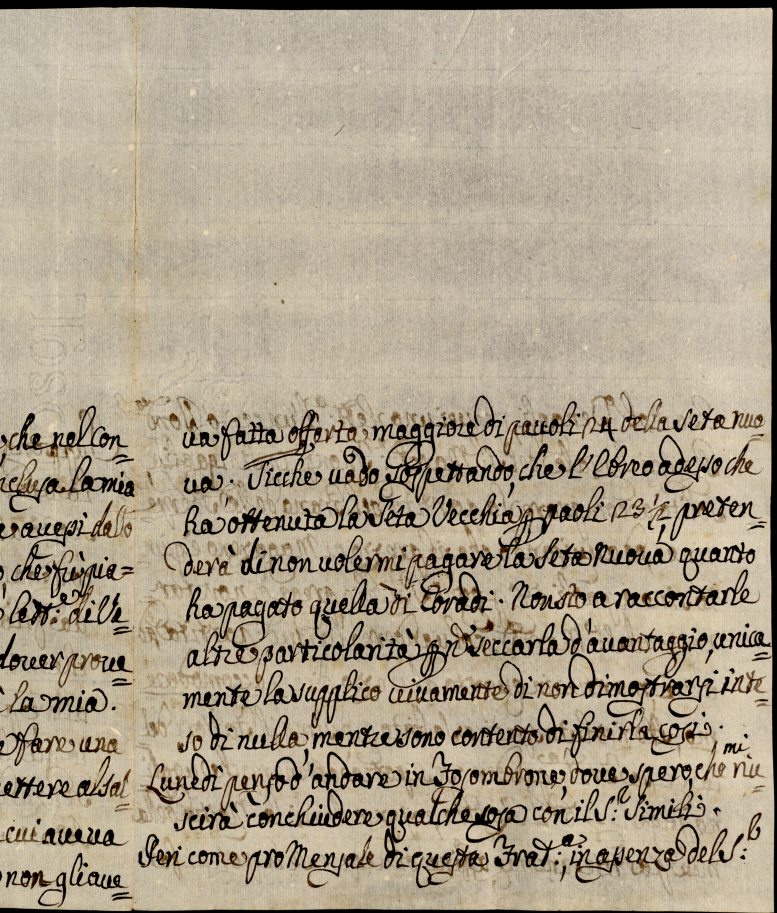 che nel con=
nclusa la mia
e avessi dato
che fù pia=
lett:e di Ve=
dover prova=
la mia.
e fare una
ettere al sal=
cui aveva
non gli ave=
va fatta offerta maggiore di pauoli 24 della seta nuo=
va. Sicche vado sospettando, che l'Ebreo adesso che
ha ottenuta la Seta Vecchia p paoli 23 1/2 preten=
derà di non volermi pagare la seta nuova quanto
ha pagato quella di Coradi. Non sto a raccontarle
altre particolarità p n seccarla d'avantaggio, unica=
mente la supplico vivamente di non dimostrarsi inte=
so di nulla, mentre sono contento di finirla così.
Lunedì penso d'andare in Fosombrone, dove spero, che mi riu=
scirà conchiudere qualche cosa con il S.r Simili.
Ieri come pro Mensale di questa Frat:a, in assenza del S:b